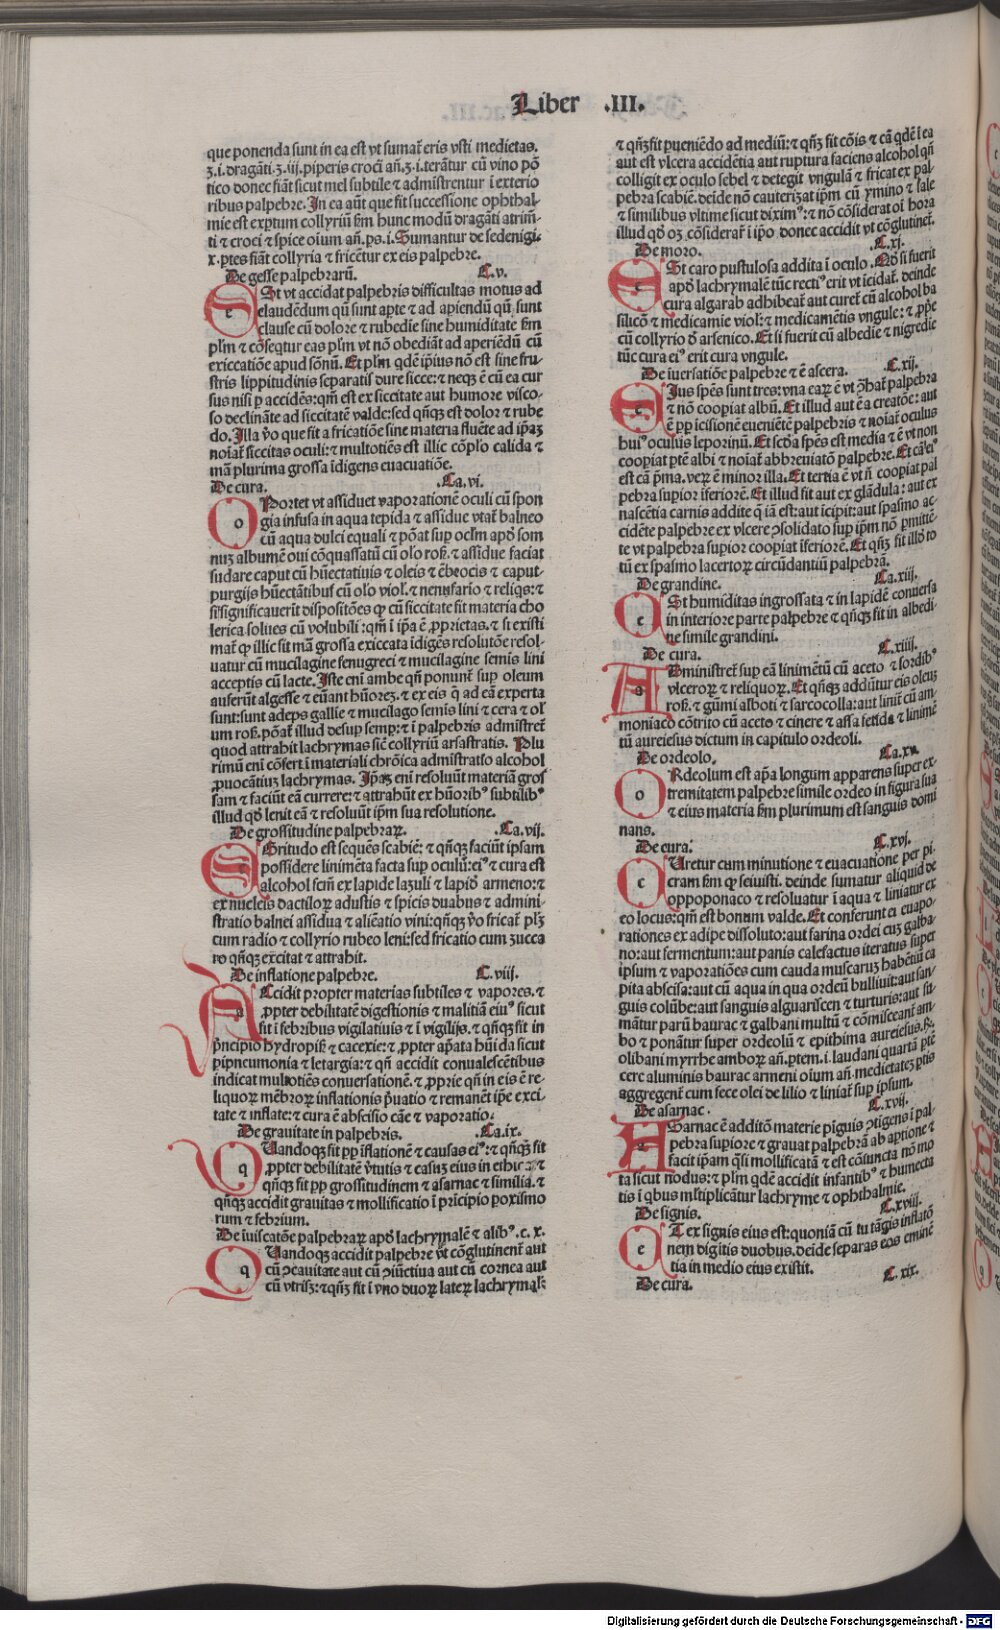 Liber .III.
que ponenda sunt in ea est vt sumat̃ eris vsti medietas.
ʒ.i. dragãti.ʒ.iij. piperis croci añ.ʒ.i. terãtur cũ vino põ
tico donec fiãt sicut mel subtile ⁊ admistrentur ĩ exterio
ribus palpebre. In ea aũt que fit successione ophthal-
mie est exptum collyriũ ẜm hunc modũ dragãti atrimẽ-
ti ⁊ croci ⁊ spice oium añ. ps.i. Sumantur de sedenigi.
x. ptes fiãt collyria ⁊ fricẽtur ex eis palpebre.
De gesse palpebrarũ. C.v.
ESt vt accidat palpebris difficultas motus ad
claudẽdum qũ sunt apte ⁊ ad apiendũ qũ sunt
clause cũ dolore ⁊ rubedie sine humiditate ẜm
plm̃ ⁊ cõseqtur eas plm̃ vt nõ obediãt ad aperiẽdũ cũ
exiccatiõe apud sõnũ. Et plm̃ qdẽ ipsius nõ est sine fru
stris lippitudinis separatis dure sicce: ⁊ neqȝ ẽ cũ ea cur
sus nisi p accidẽs: qm̃ est ex siccitate aut humore visco-
so declinãte ad siccitatẽ valde: sed qñqȝ est dolor ⁊ rube
do. Illa ṽo que fit a fricatiõe sine materia fluẽte ad ip̃aȝ
noiat̃ siccitas oculi: ⁊ multotiẽs est illic cõplo calida ⁊
mã plurima grossa ĩdigens euacuatiõe.
De cura. Ca.vi.
OPortet vt assiduet vaporationẽ oculi cũ spon
gia infusa in aqua tepida ⁊ assidue vtat̃ balneo
cũ aqua dulci equali ⁊ põat sup oclm̃ apd̃ som
nuȝ albumẽ oui cõquassatũ cũ olo ros̃. ⁊ assidue faciat
sudare caput cũ hũectatiuis ⁊ oleis ⁊ ẽbrocis ⁊ caput-
purgijs hũectãtibus̃ cũ olo viol. ⁊ nenufario ⁊ reliqs: ⁊
si significauerit dispositões ꝙ cũ siccitate sit materia cho
lerica solues cũ volubili: qm̃ ĩ ip̃a ẽ ꝓprietas. ⁊ si existi
mat̃ ꝙ illic sit mã grossa exiccata ĩdigẽs resolutõe resol-
uatur cũ mucilagine fenugreci ⁊ mucilagine semis lini
acceptis cũ lacte. Iste eni ambe qñ ponunt̃ sup oleum
auferũt algesse ⁊ euãnt hũoreȝ. ⁊ ex eis q̃ ad eã experta
sunt: sunt adeps gallie ⁊ mucilago semis lini ⁊ cera ⁊ ol
um ros̃. põat̃ illud desup semp: ⁊ ĩ palpebris admistret̃
quod attrahit lachrymas sicẽ collyriũ arsastratis. Plu
rimũ eni cõfert ĩ materiali chrõica admistratio alcohol
ꝓuocãtiuȝ lachrymas. Ip̃aȝ eni resoluũt materiã gros
sam ⁊ faciũt eã currere: ⁊ attrahũt ex hũorib⁹ subtilib⁹
illud qd̃ lenit eã ⁊ resoluũt ipm̃ sua resolutione.
De grossitudine palpebraꝝ. Ca.vij.
EGritudo est sequẽs scabiẽ: ⁊ qñqȝ faciũt ipsam
possidere linimẽta facta sup oculũ: ei⁹ ⁊ cura est
alcohol scm̃ ex lapide lazuli ⁊ lapid̃ armeno: ⁊
ex nucleis dactiloꝝ adustis ⁊ spicis duabus ⁊ admini-
stratio balnei assidua ⁊ aliẽatio vini: qñqȝ ṽo fricat̃ plȝ
cum radio ⁊ collyrio rubeo leni: sed fricatio cum zucca
ro qñqȝ excitat ⁊ attrabit.
De inflatione palpebre. C.viij.
ACcidit propter materias subtiles ⁊ vapores. ⁊
ꝓpter debilitatẽ digestionis ⁊ malitiã eiu⁹ sicut
fit ĩ febribus vigilatiuis ⁊ ĩ vigilijs. ⁊ qñqȝ fit in
p̃ncipio hydropis̃ ⁊ cacexie: ⁊ ꝓpter ap̃ata hũida sicut
pipneumonia ⁊ letargia: ⁊ qñ accidit conualescẽtibus
indicat multotiẽs conuersationẽ. ⁊ ꝓprie qñ in eis ẽ re-
liquoꝝ mẽbroꝝ inflationis p̃uatio ⁊ remanẽt ip̃e exci-
tate ⁊ inflate: ⁊ cura ẽ abscisio cãe ⁊ vaporatio.
De grauitate in palpebris. Ca.ix.
QUandoqȝ fit pp̃ ĩflationẽ ⁊ causas ei⁹: ⁊ qñqȝ fit
ꝓpter debilitatẽ ṽtutis ⁊ casuȝ eius in ethica: ⁊
qñqȝ fit pp̃ grossitudinem ⁊ asarnac ⁊ similia. ⁊
qñqȝ accidit grauitas ⁊ mollificatio ĩ prĩcipio poxismo
rum ⁊ febrium.
De ĩuiscatõe palpebraꝝ apd̃ lachrymalẽ ⁊ alib⁹. c.x.
QUandoqȝ accidit palpebre ṽt cõglutinent̃ aut
cũ ꝯcauitate aut cũ ꝯiũctiua aut cũ cornea aut
cũ vtrisqȝ: ⁊ qñqȝ fit ĩ vno duoꝝ lateꝝ lachrymal̃:
⁊ qñqȝ fit pueniẽdo ad mediũ: ⁊ qñqȝ fit cõis ⁊ cã qdẽ ĩ ea
aut est vlcera accidẽtia aut ruptura faciens alcohol qñ
colligit ex oculo sebel ⁊ detegit vngulã ⁊ fricat ex pal-
pebra scabiẽ. deide nõ cauterizat ip̃m cũ ymino ⁊ sale
⁊ similibus vltime sicut dixim⁹: ⁊ nõ cõsiderat oĩ hora
illud qd̃ oȝ cõsiderar̃ ĩ ip̃o donec accidit vt cõglutinet̃.
De moro. C.xj.
ESt caro pustulosa addita ĩ oculo. Mõ si fuerit
apd̃ lachrymalẽ tũc recti⁹ erit vt ĩcidat̃. deinde
cura algarab adhibeat̃ aut curet̃ cũ alcohol ba
silicõ ⁊ medicamie viol: ⁊ medicamẽtis vngule: ⁊ ꝓp̃e
cũ collyrio d̃ arsenico. Et si fuerit cũ albedie ⁊ nigredie
tũc cura ei⁹ erit cura vngule.
De ĩuersatiõe palpebre ⁊ ẽ ascera. C.xij.
EIus spẽs sunt tres: vna eaꝝ ẽ vt ꝯ̃hat̃ palpebra
⁊ nõ coopiat albũ. Et illud aut ẽ a creatõe: aut
ẽ pp̃ ĩcisionẽ eueniẽtẽ palpebris ⁊ noiat̃ oculus
hui⁹ oculus leporinũ. Et scd̃a spẽs est media ⁊ ẽ vt non
coopiat ptẽ albi ⁊ noiat̃ abbreuiatõ palpebre. Et cã ei⁹
est cã p̃ma. veꝝ ẽ minor illa. Et tertia ẽ vt ñ coopiat pal
pebra supior ĩferiorẽ. Et illud fit aut ex glãdula: aut ex
nascẽtia carnis addite q̃ iã est: aut ĩcipit: aut spasmo ac-
cidẽte palpebre ex vlcere ꝯsolidato sup ip̃m nõ pmittẽ-
te vt palpebra supior coopiat ĩferiorẽ. Et qñqȝ fit illd̃ to
tũ ex spasmo lacertoꝝ circũdantiũ palpebrã.
De grandine. Ca.xiij.
ESt humiditas ingrossata ⁊ in lapidẽ conuersa
in interiore parte palpebre ⁊ qñqȝ fit in albedi-
ne simile grandini.
De cura. C.xiiij.
ADministret̃ sup eã linimẽtũ cũ aceto ⁊ sordib⁹
vlceroꝝ ⁊ reliquoꝝ. Et qñqȝ addũtur eis oleuȝ
ros̃. ⁊ gũmi alboti ⁊ sarcocolla: aut linit̃ cũ am-
moniaco cõtrito cũ aceto ⁊ cinere ⁊ assa fetida ⁊ linimẽ
tũ aureiesus dictum in capitulo ordeoli.
De ordeolo. Ca.xv.
ORdeolum est ap̃a longum apparens super ex-
tremitatem palpebre simile ordeo in figura sua
⁊ eius materia ẜm plurimum est sanguis domi
nans.
De cura. C.xvi.
CUretur cum minutione ⁊ euacuatione per pi.
cram ẜm ꝙ sciuisti. deinde sumatur aliquid de
oppoponaco ⁊ resoluatur ĩ aqua ⁊ liniatur ex
eo locus: qm̃ est bonum valde. Et conferunt ei euapo-
rationes ex adipe dissoluto: aut farina ordei cuȝ galba-
no: aut fermentum: aut panis calefactus iteratus super
ipsum ⁊ vaporatiões cum cauda muscaruȝ habẽtiũ ca
pita abscisa: aut cũ aqua in qua ordeũ bulliuit: aut san-
guis colũbe: aut sanguis alguariscen ⁊ turturis: aut su-
mãtur parũ baurac ⁊ galbani multũ ⁊ cõmisceant̃ am-
bo ⁊ ponãtur super ordeolũ ⁊ epithima aureiesus. R̃.
olibani myrrhe amboꝝ añ. ptem.i. laudani quartã ptẽ
cere aluminis baurac armeni oium añ. medietatẽ ptis
aggregent̃ cum fece olei de lilio ⁊ liniat̃ sup ipsum.
De asarnac. C.xvij.
ASarnac ẽ additõ materie pĩguis ꝯtigens ĩ pal-
pebra supiore ⁊ grauat palpebrã ab aptione ⁊
facit ip̃am q̃si mollificatã ⁊ est cõiuncta nõ mo
ta sicut nodus: ⁊ plm̃ qdẽ accidit infantib⁹ ⁊ humecta
tis ĩ qbus mltiplicãtur lachryme ⁊ ophthalmie.
De signis. C.xviij.
ET ex signis eius est: quoniã cũ tu tãgis inflatõ
nem digitis duobus. deĩde separas eos eminẽ
tia in medio eius existit.
De cura. C.xix.
Digitalisierung gefördert durch die Deutsche Forschungsgemeinschaft - DFG